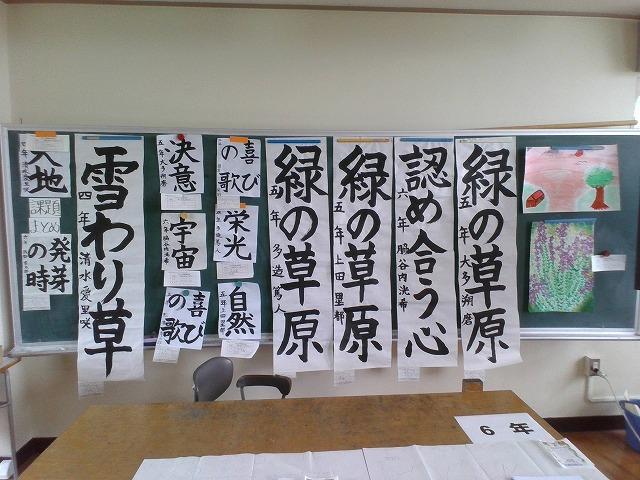 大地
課題
発芽
の時
雪わり草
四年 清水愛里咲
決意
五年
宇宙
六年
喜び
の歌
喜び
の歌
栄光
自然
五年
緑の草原
五年 多造篤人
緑の草原
五年 上田塁都
認め合う心
六年 脇谷内洸希
緑の草原
五年 大多朔磨
6年